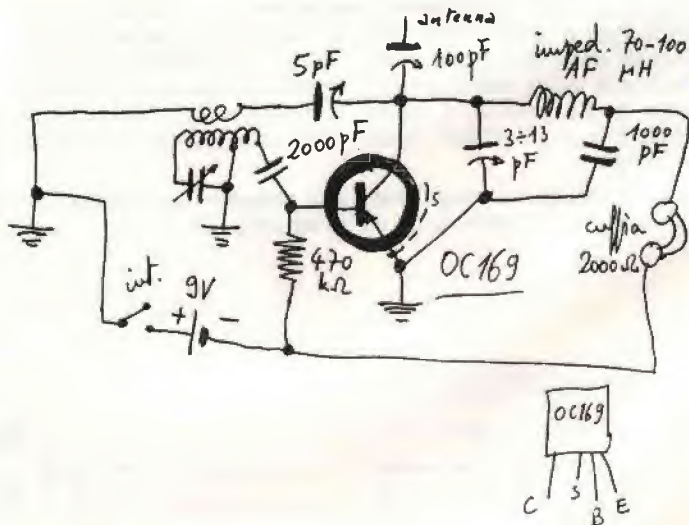 antenna
100pF
5pF
imped. 70-100
AF μH
2000pF
3÷13
pF
1000
pF
S
cuffia
2000Ω
470
kΩ
OC169
int.
9V
+ -
OC169
C S B E